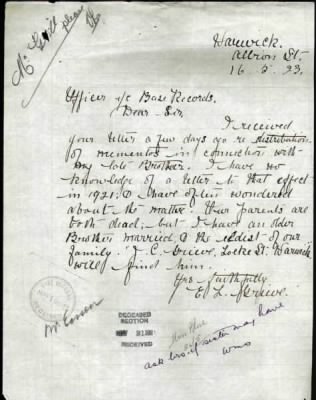 Mr Gill please
Warwick.
Albion St.
16. 5. 23.
Officer i/c Base Records.
Dear Sir,
I received
your letter a few days ago re distribution
of mementos in connection with
my late Brother. I have no
knowledge of a letter to that effect
in 1921; & have often wondered
about the matter. Our parents are
both dead; but I have an older
Brother married & the eldest of our
family. C. Locke St. Warwick
will find him.
Yrs faithfully
E. L.
DECEASED
SECTION
MAY 21 1923
RECEIVED
ask bro. if sister may have
wms